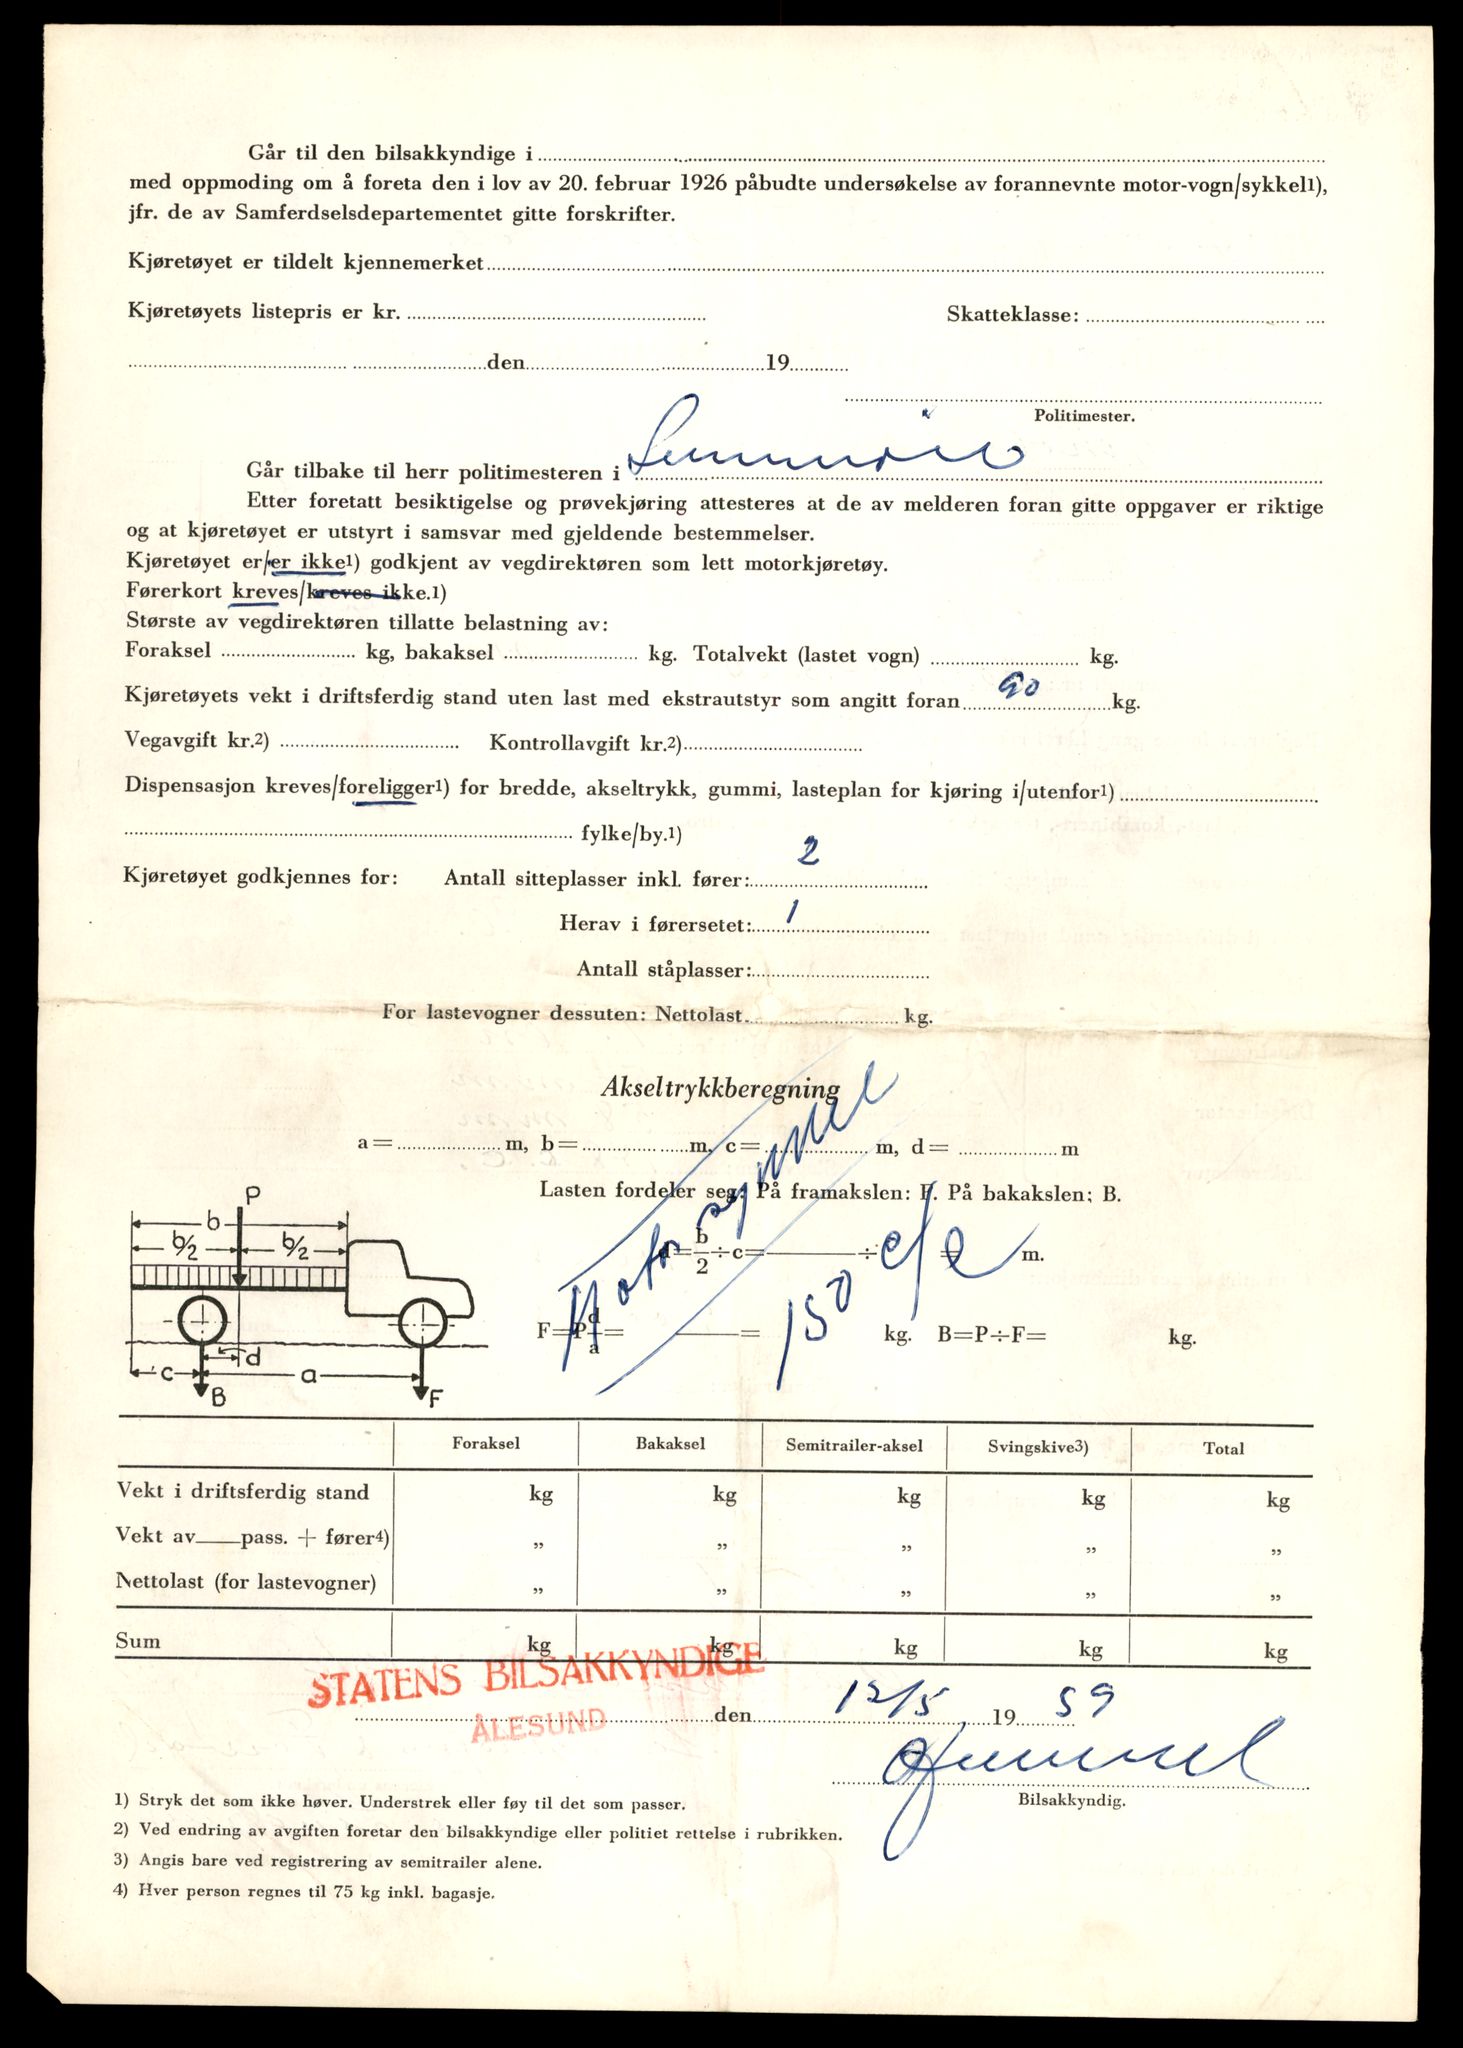 Går til den bilsakkyndige i
med oppmoding om å foreta den i lov av 20. februar 1926 påbudte undersøkelse av forannevnte motor-vogn/sykkel1),
jfr. de av Samferdselsdepartementet gitte forskrifter.
Kjøretøyet er tildelt kjennemerket
Kjøretøyets listepris er kr. Skatteklasse:
den 19
Politimester.
Går tilbake til herr politimesteren i Sunnmöre
Etter foretatt besiktigelse og prøvekjøring attesteres at de av melderen foran gitte oppgaver er riktige
og at kjøretøyet er utstyrt i samsvar med gjeldende bestemmelser.
Kjøretøyet er/er ikke1) godkjent av vegdirektøren som lett motorkjøretøy.
Førerkort kreves/kreves ikke.1)
Største av vegdirektøren tillatte belastning av:
Foraksel kg, bakaksel kg. Totalvekt (lastet vogn) kg.
Kjøretøyets vekt i driftsferdig stand uten last med ekstrautstyr som angitt foran 90 kg.
Vegavgift kr.2) Kontrollavgift kr.2)
Dispensasjon kreves/foreligger1) for bredde, akseltrykk, gummi, lasteplan for kjøring i/utenfor1)
fylke/by.1)
Kjøretøyet godkjennes for: Antall sitteplasser inkl. fører: 2
Herav i førersetet: 1
Antall ståplasser:
For lastevogner dessuten: Nettolast kg.
Akseltrykkberegning
a = m, b = m, c = m, d = m
Lasten fordeler seg: På framakslen: F. På bakakslen; B.
d = b/2 ÷ c = ÷ = m.
Motorsykkel
150 c/c
F = P d/a = = kg. B=P÷F= kg.
P
b
b/2 b/2
d
c a
B F
Foraksel Bakaksel Semitrailer-aksel Svingskive3) Total
Vekt i driftsferdig stand kg kg kg kg kg
Vekt av pass. + fører4) „ „ „ „ „
Nettolast (for lastevogner) „ „ „ „ „
Sum kg kg kg kg kg
STATENS BILSAKKYNDIGE
ÅLESUND
den 12/5 19 59
Bilsakkyndig.
1) Stryk det som ikke høver. Understrek eller føy til det som passer.
2) Ved endring av avgiften foretar den bilsakkyndige eller politiet rettelse i rubrikken.
3) Angis bare ved registrering av semitrailer alene.
4) Hver person regnes til 75 kg inkl. bagasje.